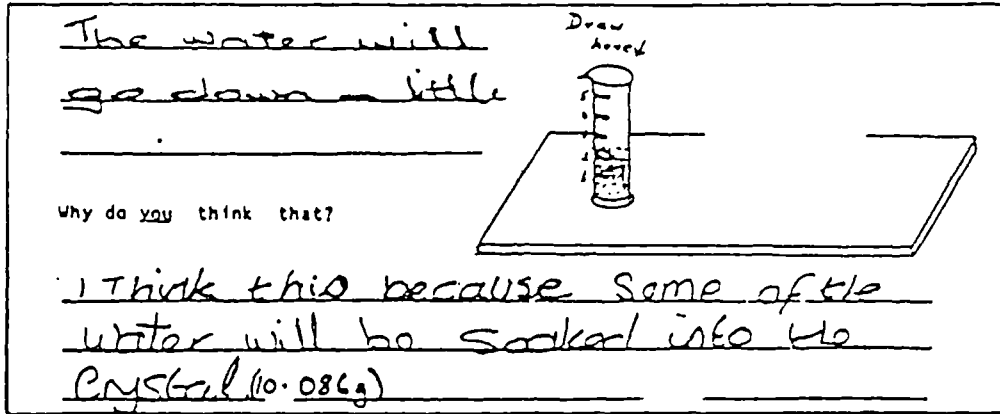 The water will
Draw
here
go down a little
Why do you think that?
I Think this because Some of the
water will be Soaked into the
Crystal (10.086g)